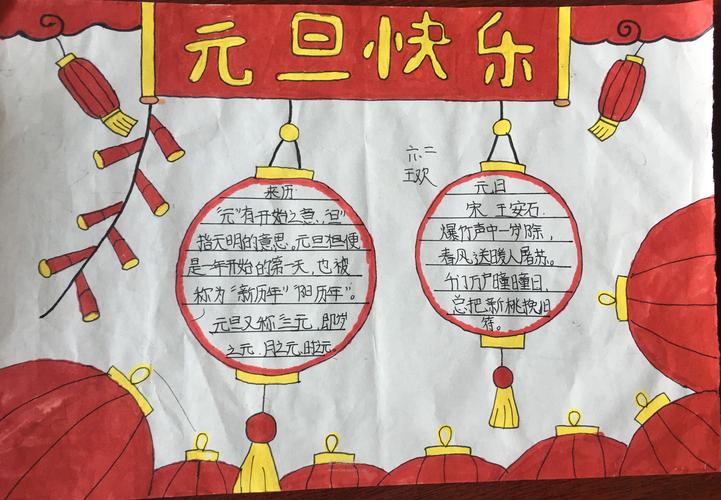 元旦快乐
六.二
王欢
来历
"元"有开始之意,"旦"
指天明的意思。元旦担便
是一年开始的第一天,也被
称为"新历年""阳历年"。
元旦又称"三元,即岁
之元、月之元、时之元。
元日
宋 王安石
爆竹声中一岁除,
春风送暖入屠苏。
千门万户瞳瞳日,
总把新桃换旧
符。